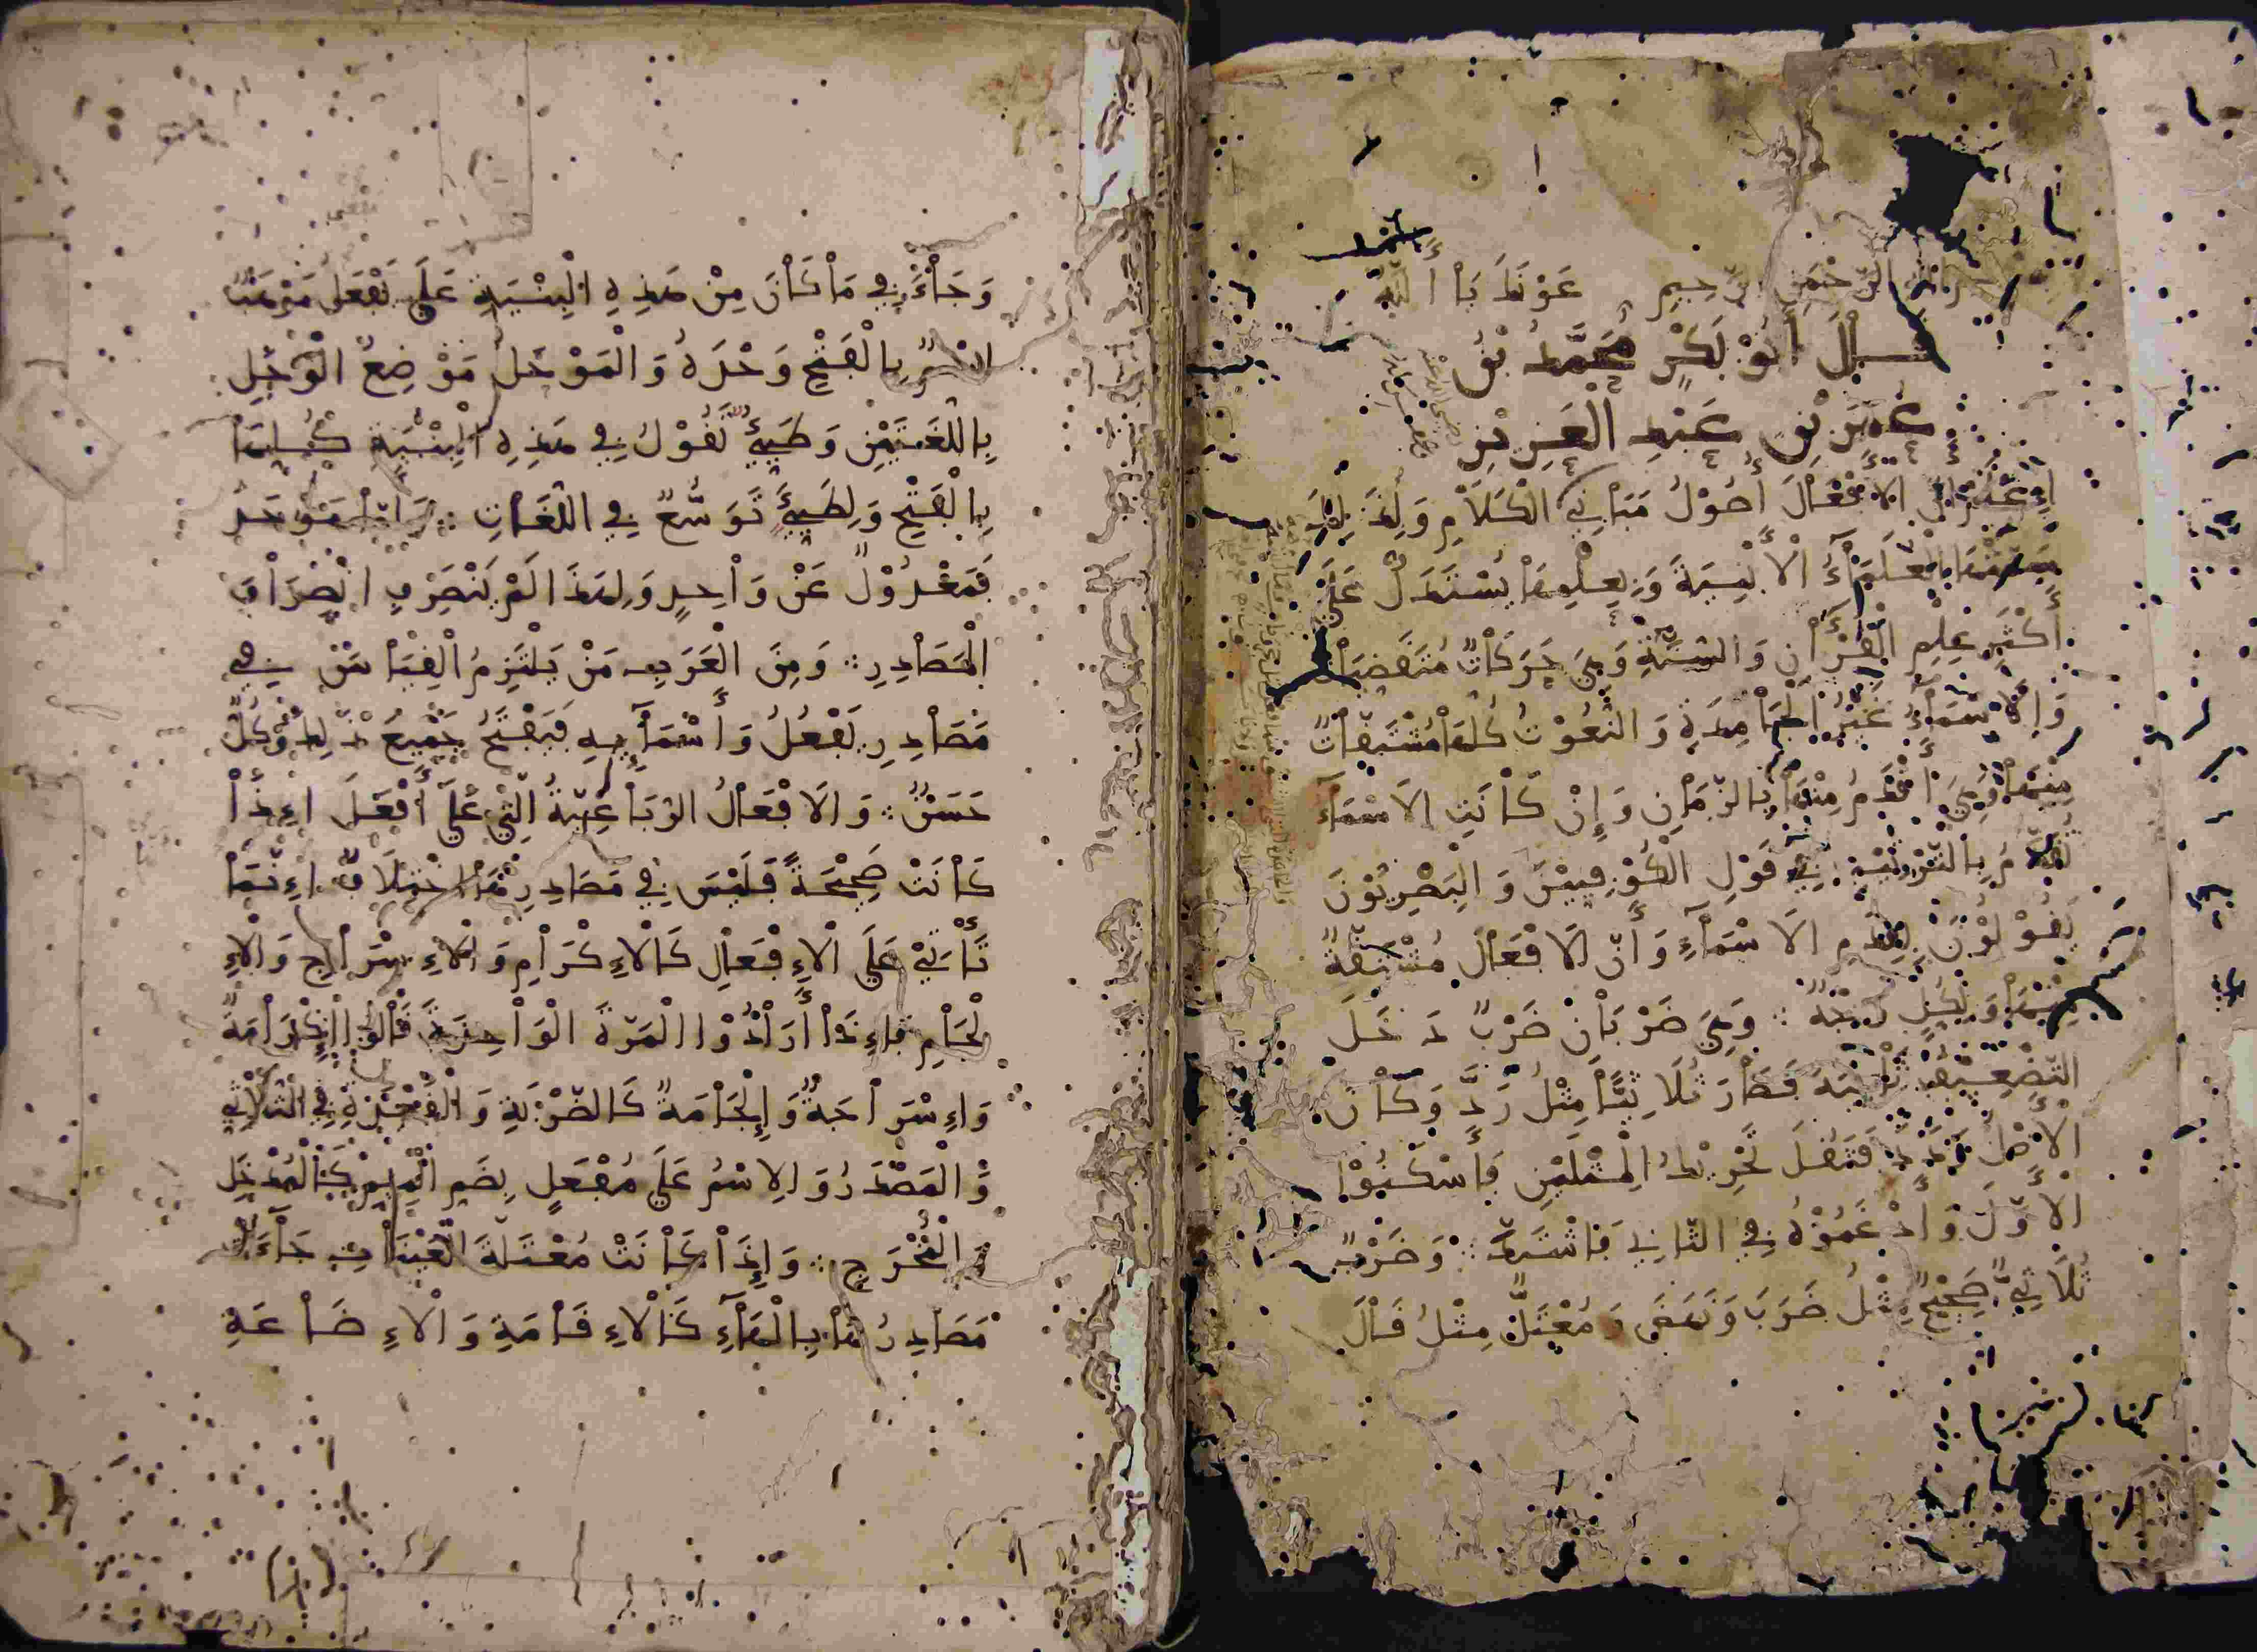 الرَّحْمٰنِ الرَّحِيمِ عَوْنَكَ يَا اَللَّهُ
قَالَ أَبُوْ بَكْرٍ مُحَمَّدُ بْنُ
عُمَرَ بْنِ عَبْدِ الْعَزِيْزِ
اِعْلَمْ أَنَّ الْأَفْعَالَ أُصُوْلُ مَبَانِي الْكَلَامِ وَلِذَلِكَ
سَمَّتْهَا الْعُلَمَاءُ الْأَبْنِيَةَ وَبِعِلْمِهَا يُسْتَدَلُّ عَلَى
أَكْثَرِ عِلْمِ الْقُرْآنِ وَالسُّنَّةِ وَهِيَ حَرَكَاتٌ مُتَقَضِّيَاتٌ
وَالْأَسْمَاءُ غَيْرُ الْجَامِدَةِ وَالنُّعُوْتُ كُلُّهَا مُشْتَقَّاتٌ
مِنْهَا وَهِيَ أَقْدَمُ مِنْهَا بِالزَّمَانِ وَإِنْ كَانَتِ الْأَسْمَاءُ
أَقْدَمَ بِالتَّرْتِيْبِ فِي قَوْلِ الْكُوْفِيِّيْنَ وَالْبَصْرِيُّوْنَ
يَقُوْلُوْنَ بِقِدَمِ الْأَسْمَاءِ وَأَنَّ الْأَفْعَالَ مُشْتَقَّةٌ
مِنْهَا وَلِكُلٍّ حُجَّةٌ ∴ وَهِيَ ضَرْبَانْ ضَرْبٌ دَخَلَ
التَّضْعِيْفُ ثَانِيَهُ فَصَارَ ثُلَاثِيًّا مِثْلُ رَدَّ وَكَانَ
الْأَصْلُ رَدَدَ فَثَقُلَ تَحْرِيْكُ الْمِثْلَيْنِ فَأَسْكَنُوْا
الْأَوَّلَ وَأَدْغَمُوْهُ فِي الثَّانِي فَاشْتَدَّ ∴ وَضَرْبٌ
ثُلَاثِيٌّ صَحِيْحٌ مِثْلُ ضَرَبَ وَنَهَضَ وَمُعْتَلٌّ مِثْلُ قَالَ
وَجَاءَ فِي مَا كَانَ مِنْ هَذِهِ الْبِنْيَةِ عَلَى يَفْعَلُ مَوْهَبٌ
اسْمٌ بِالْفَتْحِ وَحْدَهُ وَالْمَوْحَلُ مَوْضِعُ الْوَحْلِ
بِاللُّغَتَيْنِ وَطَيِّئٌ تَقُوْلُ فِي هَذِهِ الْبِنْيَةِ كُلِّهَا
بِالْفَتْحِ وَلِطَيِّئٍ تَوَسُّعٌ فِي اللُّغَاتِ ∴ وَأَمَّا مَوْحَدُ
فَمَعْدُوْلٌ عَنْ وَاْحِدٍ وَلِهَذَا لَمْ يَنْصَرِفِ انْصِرَافَ
الْمَصَادِرِ ∴ وَمِنَ الْعَرَبِ مَنْ يَلْتَزِمُ الْقِيَاسَ فِي
مَصَادِرِ يَفْعُلُ وَأَسْمَائِهِ فَيَفْتَحُ جَمِيْعَ ذَلِكَ وَكُلٌّ
حَسَنٌ ∴ وَالْأَفْعَالُ الرُّبَاعِيَّةُ الَّتِي عَلَى أَفْعَلَ اِذَا
كَانَتْ صَحِيْحَةً فَلَيْسَ فِي مَصَادِرِهَا اخْتِلَافٌ اِنَّمَا
تَأْتِيْ عَلَى الْإِفْعَالِ كَالْإِكْرَامِ وَالْإِسْرَاجِ وَالْإِ
لْجَامِ فَاِذَا أَرَادُوا الْمَرَّةَ الْوَاحِدَةَ قَالُوا إِكْرَامَةٌ
وَاِسْرَاجَةٌ وَإِلْجَامَةٌ كَالضَّرْبَةِ وَالْقَعْدَةِ فِي الثُّلَاثِيِّ
وَالْمَصْدَرُ وَالِاسْمُ عَلَى مُفْعَلٍ بِضَمِّ الْمِيْمِ كَالْمُدْخَلِ
وَالْمُخْرَجِ ∴ وَإِذَا كَانَتْ مُعْتَلَّةَ الْعَيْنَاتِ جَاءَتْ
مَصَادِرُهَا بِالْهَاءِ كَالْإِقَامَةِ وَالْإِضَاعَةِ